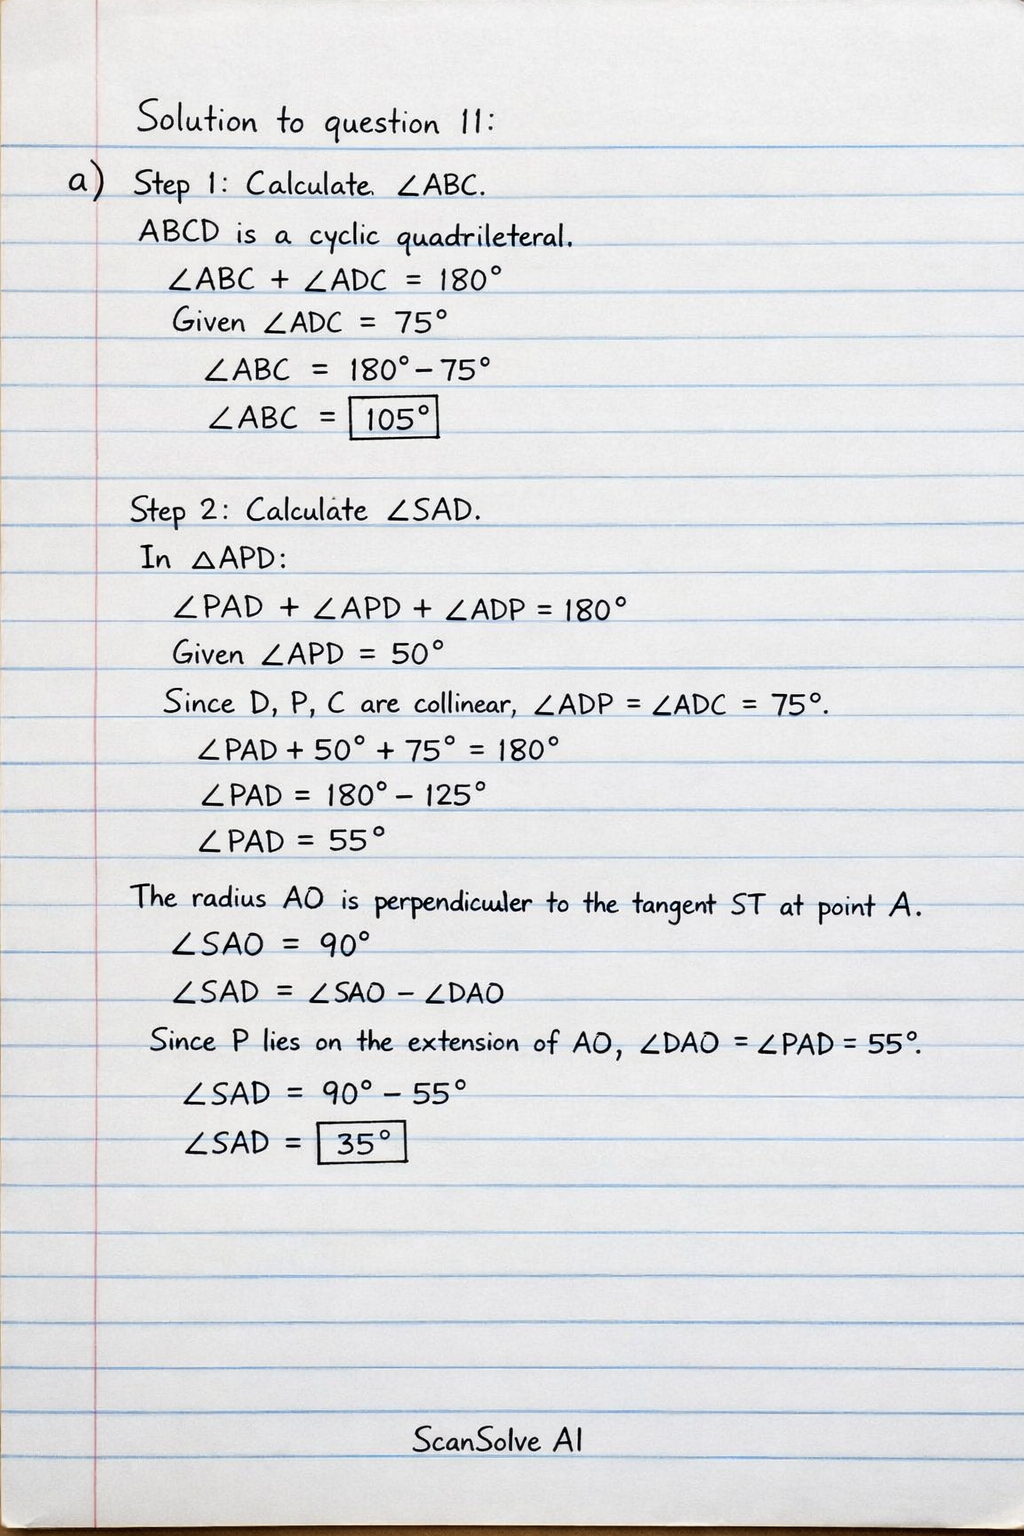 Solution to question 11:
a) Step 1: Calculate. ∠ABC.
ABCD is a cyclic quadrileteral.
∠ABC + ∠ADC = 180°
Given ∠ADC = 75°
∠ABC = 180° - 75°
∠ABC = 105°
Step 2: Calculate ∠SAD.
In △APD:
∠PAD + ∠APD + ∠ADP = 180°
Given ∠APD = 50°
Since D, P, C are collinear, ∠ADP = ∠ADC = 75°.
∠PAD + 50° + 75° = 180°
∠PAD = 180° - 125°
∠PAD = 55°
The radius AO is perpendiculer to the tangent ST at point A.
∠SAO = 90°
∠SAD = ∠SAO - ∠DAO
Since P lies on the extension of AO, ∠DAO = ∠PAD = 55°.
∠SAD = 90° - 55°
∠SAD = 35°
ScanSolve AI